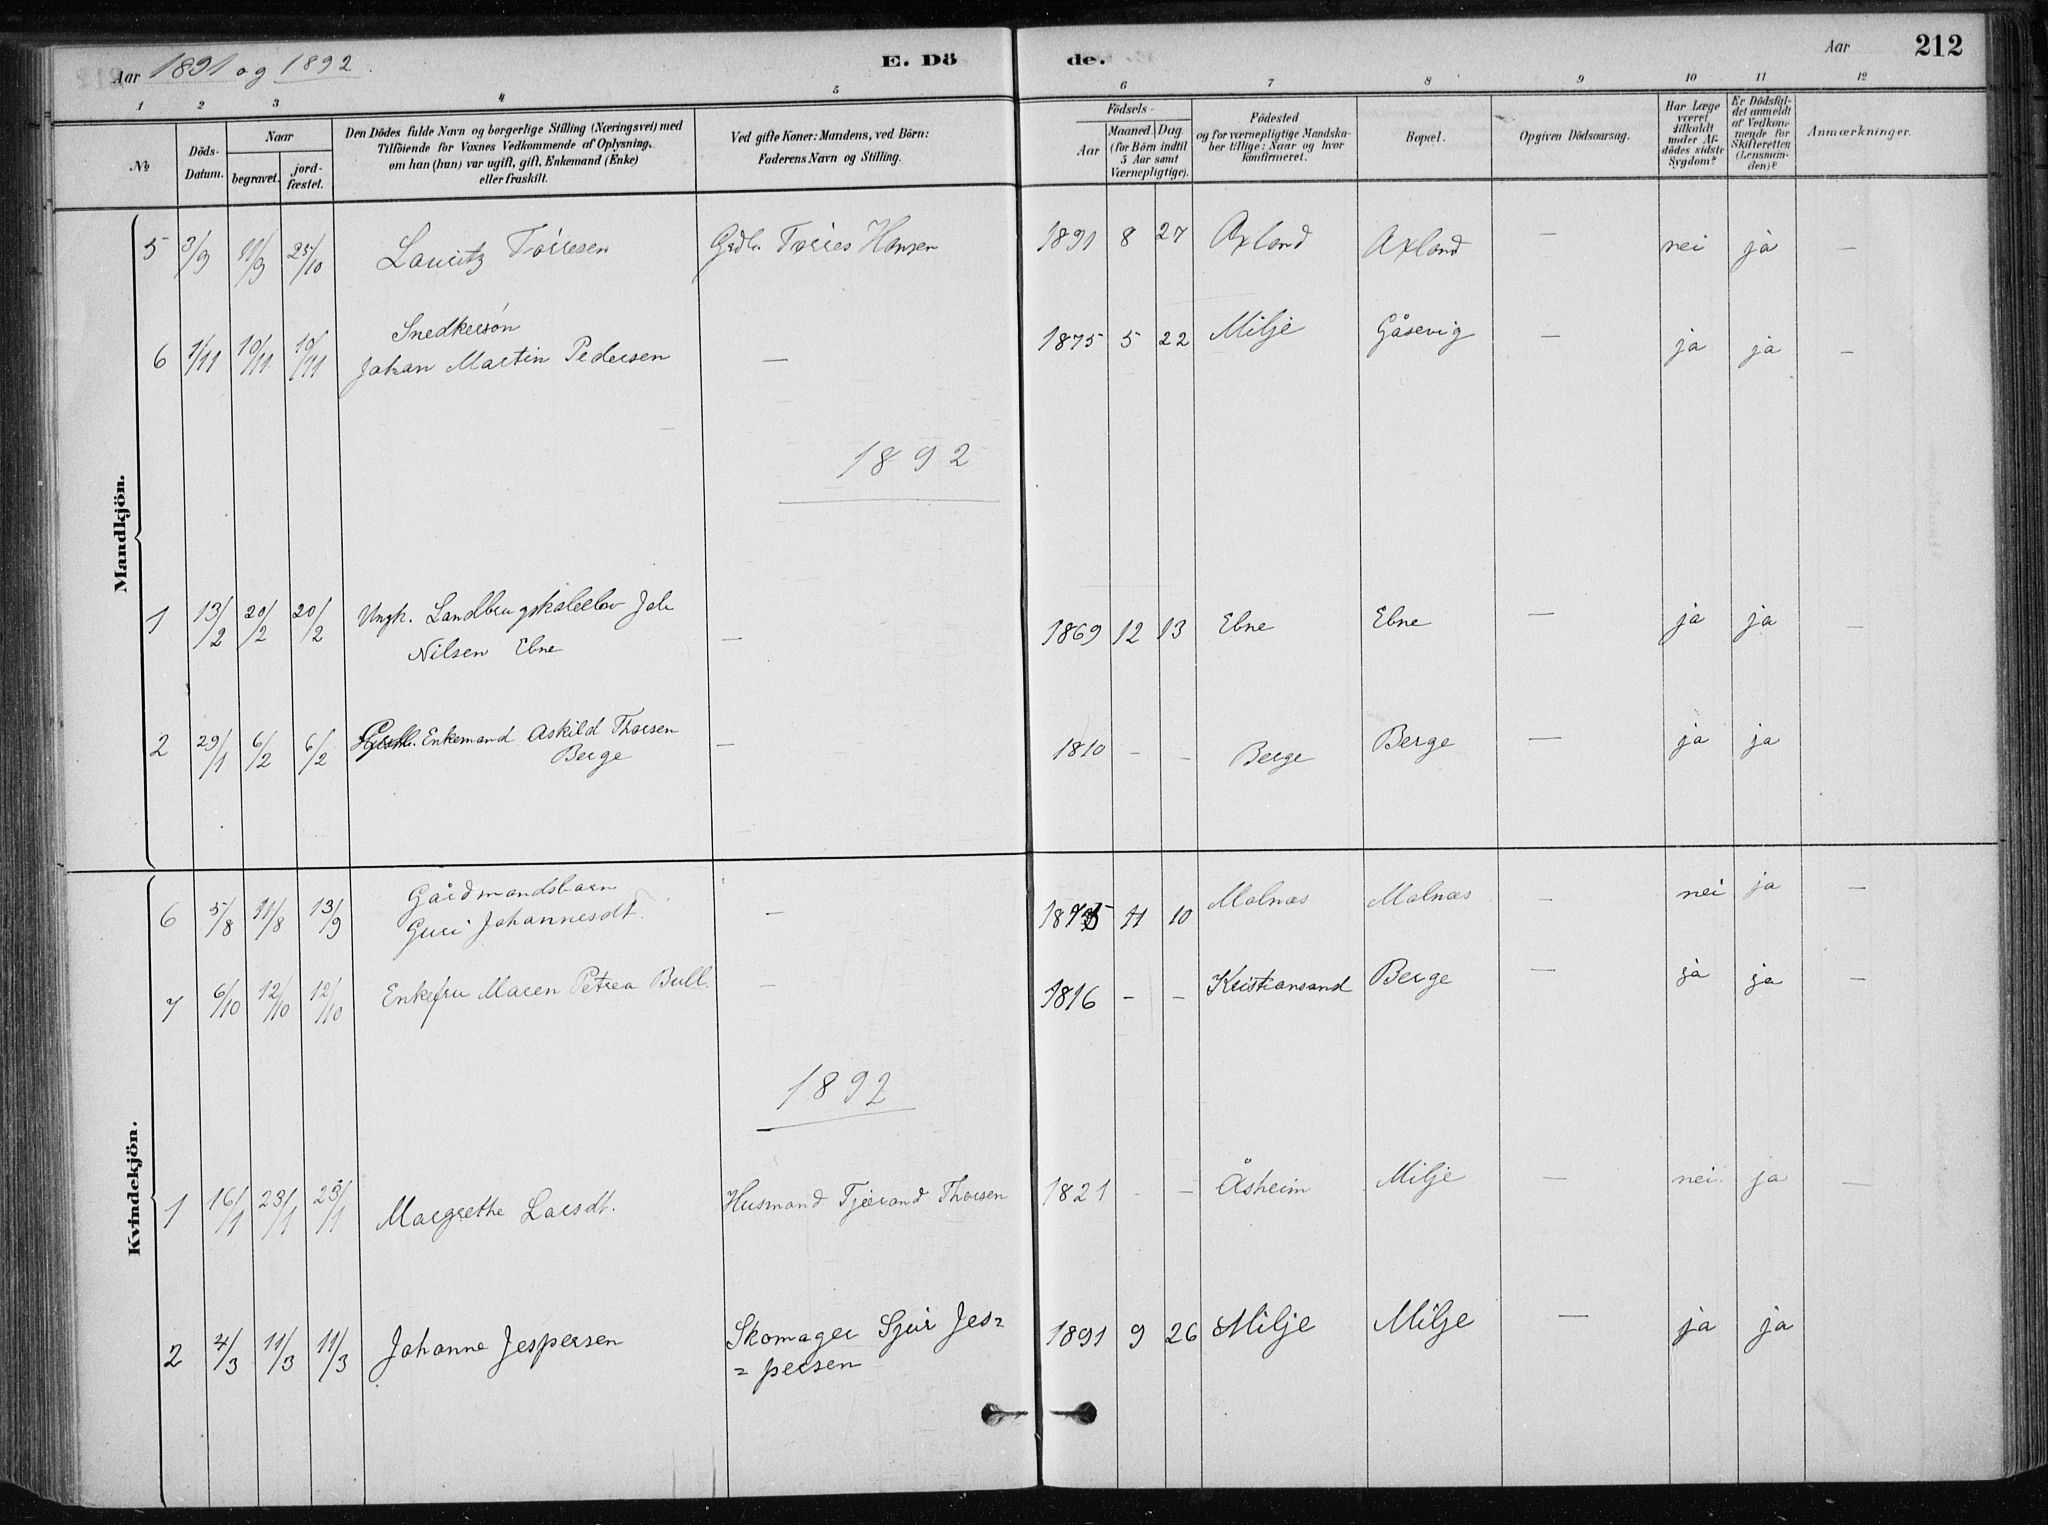 Aar 1891 og 1892.
E. Dö de.
Aar
212
1 2 3 4 5 6 7 8 9 10 11 12
No
Döds-
Datum.
Naar
begravet.
jord-
fæstet.
Den Dödes fulde Navn og borgerlige Stilling (Næringsvei) med
Tilföiende for Voxnes Vedkommende af Oplysning,
om han (hun) var ugift, gift, Enkemand (Enke)
eller fraskilt.
Ved gifte Koner: Mandens, ved Börn:
Faderens Navn og Stilling.
Födsels-
Aar
Maaned. Dag.
(for Börn indtil
5 Aar samt
Værnepligtige).
Födested
og for værnepligtige Mandska-
ber tillige: Naar og hvor
konfirmeret.
Bopæl.
Opgiven Dödsaarsag.
Har Læge
været
tilkaldt
under Af-
dödes sidste
Sygdom?
Er Dödsfal-
det anmeldt
af Vedkom-
mende for
Skifteretten
(Lensman-
den)?
Anmærkninger.
Mandkjön.
5 3/9 11/9 25/10 Lauritz Tørresen Grdbr. Tørres Hansen 1891 8 27 Axland Axland — nei ja —
Snedkersøn
6 1/11 10/11 10/11 Johan Martin Pedersen — 1875 5 22 Milje Gåsevig — ja ja —
1892
1 13/2 20/2 20/2 Ungk. Landbrugskole Joh
Nilsen Ebne — 1869 12 13 Ebne Ebne — ja ja —
2 29/1 6/2 6/2 Enkemand Askild Thorsen
Berge — 1810 — — Berge Berge — ja ja
Kvindekjön.
Gårdmandsbarn
6 5/8 11/8 13/9 Guri Johannesdt. — 11 10 Malnæs Malnæs — nei ja —
7 6/10 12/10 12/10 Enkefru Maren Petrea Bull. — 1816 — — Kristiansand Berge — ja ja —
1892
1 16/1 23/1 23/1 Margrethe Larsdt. Husmand Tjerand Thorsen 1821 — — Åsheim Milje — nei ja —
2 4/3 11/3 11/3 Johanne Jespersen Skomager Sjur Jes=
=persen 1891 9 26 Milje Milje — ja ja